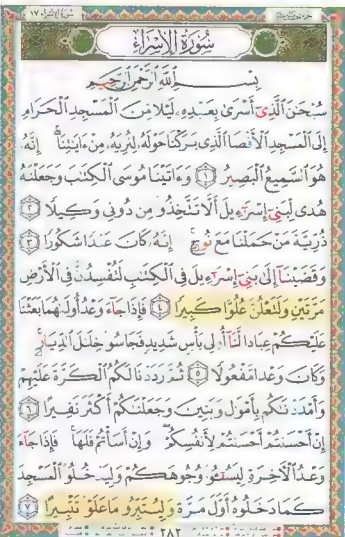 سُورَةُ الإِسْرَاء ١٧
سُورَةُ الإِسْرَاءِ
بِسْمِ اللَّهِ الرَّحْمَٰنِ الرَّحِيمِ
سُبْحَٰنَ الَّذِيٓ أَسْرَىٰ بِعَبْدِهِۦ لَيْلًا مِّنَ الْمَسْجِدِ الْحَرَامِ
إِلَى الْمَسْجِدِ الْأَقْصَا الَّذِي بَٰرَكْنَا حَوْلَهُۥ لِنُرِيَهُۥ مِنْ ءَايَٰتِنَآ إِنَّهُۥ
هُوَ السَّمِيعُ الْبَصِيرُ ١ وَءَاتَيْنَا مُوسَى الْكِتَٰبَ وَجَعَلْنَٰهُ
هُدًى لِّبَنِيٓ إِسْرَٰٓءِيلَ أَلَّا تَتَّخِذُوا مِن دُونِي وَكِيلًا ٢
ذُرِّيَّةَ مَنْ حَمَلْنَا مَعَ نُوحٍ إِنَّهُۥ كَانَ عَبْدًا شَكُورًا ٣
وَقَضَيْنَآ إِلَىٰ بَنِيٓ إِسْرَٰٓءِيلَ فِي الْكِتَٰبِ لَتُفْسِدُنَّ فِي الْأَرْضِ
مَرَّتَيْنِ وَلَتَعْلُنَّ عُلُوًّا كَبِيرًا ٤ فَإِذَا جَآءَ وَعْدُ أُولَىٰهُمَا بَعَثْنَا
عَلَيْكُمْ عِبَادًا لَّنَآ أُو۟لِي بَأْسٍ شَدِيدٍ فَجَاسُوا خِلَٰلَ الدِّيَارِ
وَكَانَ وَعْدًا مَّفْعُولًا ٥ ثُمَّ رَدَدْنَا لَكُمُ الْكَرَّةَ عَلَيْهِمْ
وَأَمْدَدْنَٰكُم بِأَمْوَٰلٍ وَبَنِينَ وَجَعَلْنَٰكُمْ أَكْثَرَ نَفِيرًا ٦
إِنْ أَحْسَنتُمْ أَحْسَنتُمْ لِأَنفُسِكُمْ وَإِنْ أَسَأْتُمْ فَلَهَا فَإِذَا جَآءَ
وَعْدُ الْآخِرَةِ لِيَسُۥٓـُٔوا وُجُوهَكُمْ وَلِيَدْخُلُوا الْمَسْجِدَ
كَمَا دَخَلُوهُ أَوَّلَ مَرَّةٍ وَلِيُتَبِّرُوا مَا عَلَوْا تَتْبِيرًا ٧
٢٨٢